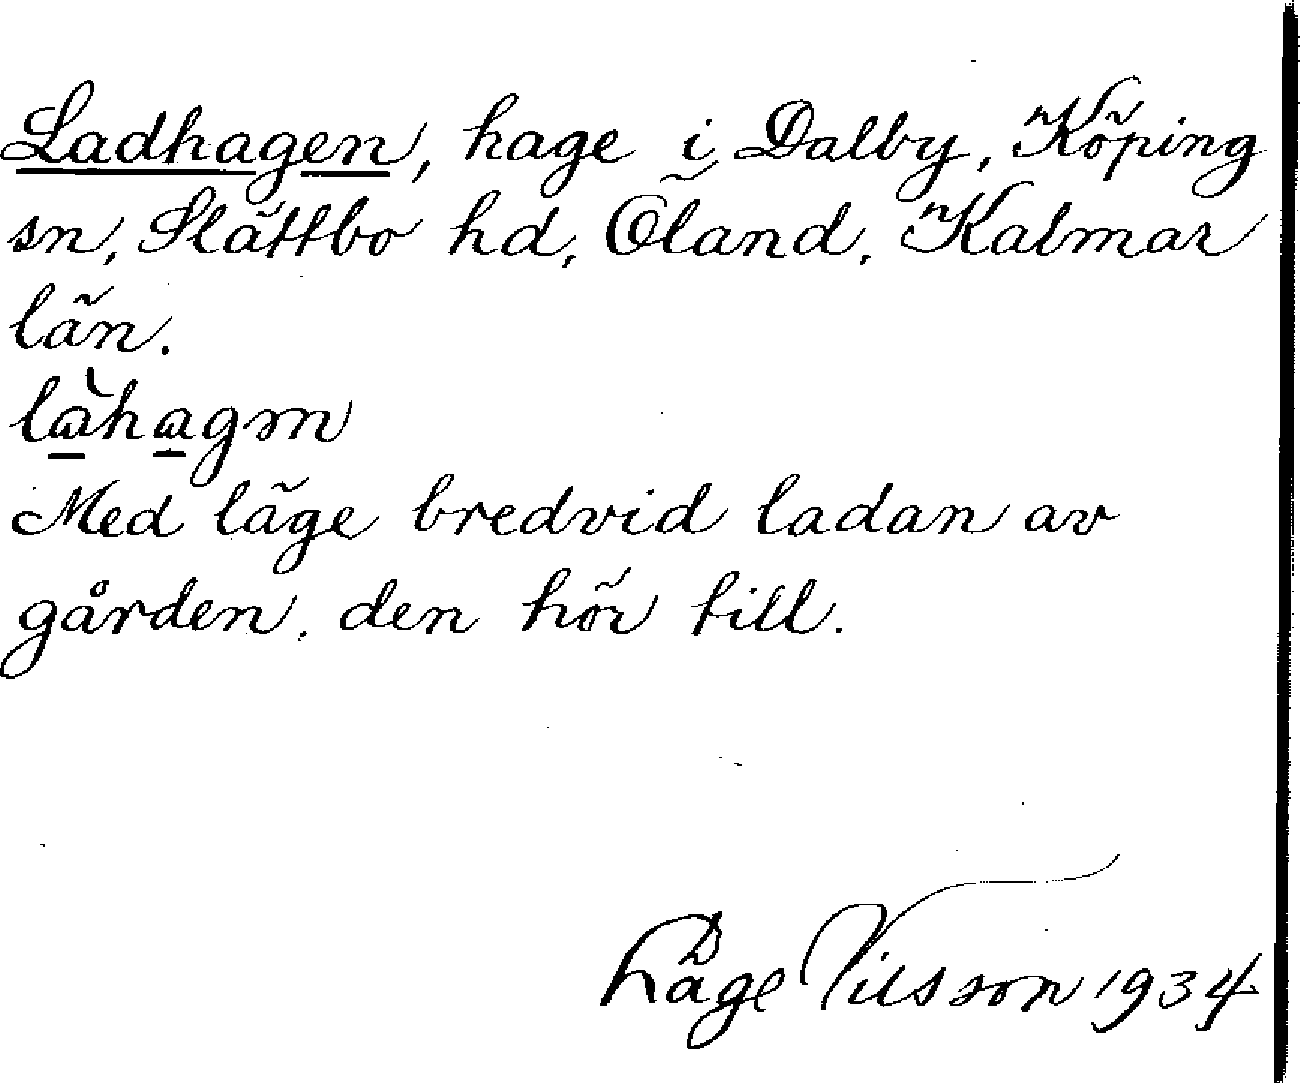 Ladhagen, hage i Dalby, Köping
sn, Slättbo hd, Öland, Kalmar
län.
làhagm
Med läge bredvid ladan av
gården, den hör till.
Låge Nilsson 1934